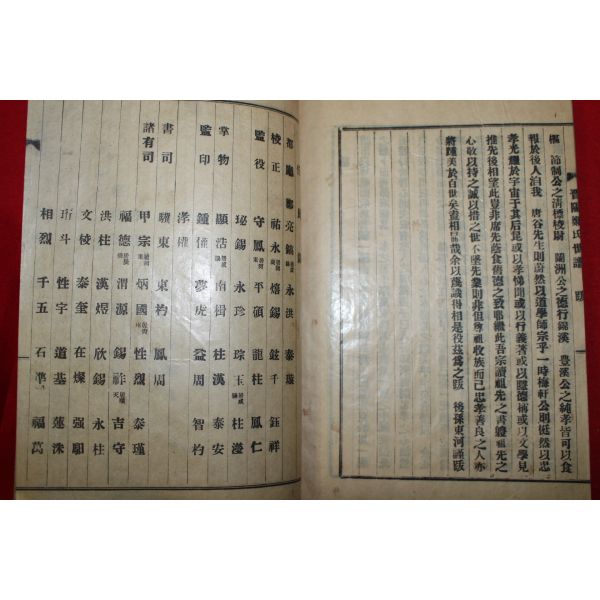 晋陽鄭氏世譜 跋
樞 節制公之淸標綾尉 蘭洲公之德行錦溪 豊溪公之純孝皆可以食
報於後人洎我 唐谷先生則蔚然以道學師宗乎一時梅軒公則挺然以忠
孝光耀於宇宙于其后昆或以孝悌聞或以行義著或以隱德稱或以文學見
推先後相望此豈非席先蔭食舊德之致耶繼此吾宗讀祖先之書體祖先之
心敬以持之誠以措之世不墜先業則非但尊祖收族而已忠孝善良之人亦
將踵美於百世矣盍相勗哉余以蕪識得相是役玆爲之跋 後孫東河謹跋
都廳 鄭亮鎬 永洪 泰璇
校正 祐永 熔錫 鉉千 鈺祥
監役 守鳳 平碩 龍柱 鳳仁
珌錫 永珍 琮玉 柱漫
掌物 顯浩 南楫 柱漢 泰安
監印 鍾僅 夢虎 益周 智杓
孝權
書司 驥東 東杓 鳳周
諸有司 甲宗 炳國 性烈 泰瑾
福德 渭源 錫祚 吉守
洪柱 漢煜 欣錫 永柱
文棱 泰奎 在燦 强願
珩斗 性宇 道基 蓮洙
相烈 千五 石準 福萬